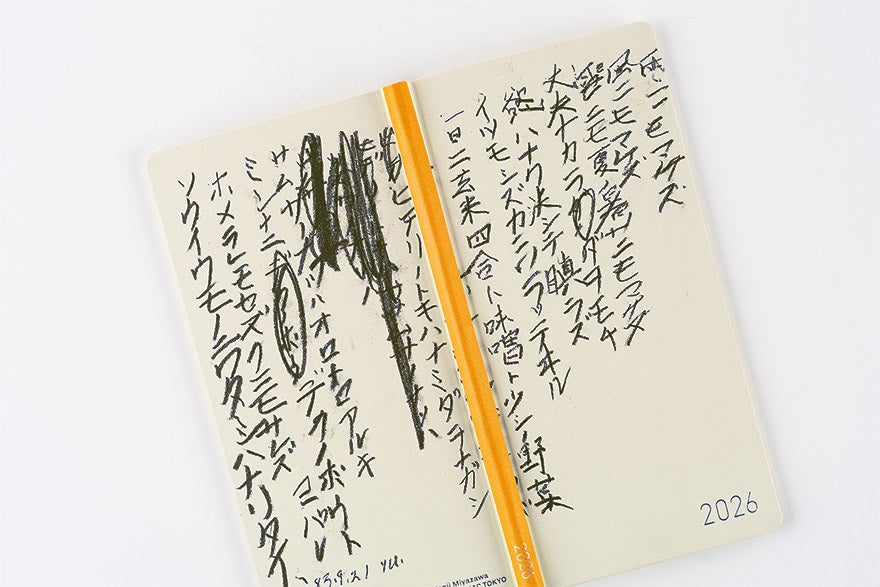 雨ニモマケズ
風ニモマケズ
雪ニモ夏ノ暑サニモマケヌ
丈夫ナカラダヲモチ
慾ハナク決シテ瞋ラズ
イツモシズカニワラッテイル
一日ニ玄米四合ト味噌ト少シノ野菜
ヒデリノトキハナミダヲナガシ
サムサノナツハオロオロアルキ
ミンナニデクノボウト
ヨバレ
ホメラレモセズクニモサレズ
ソウイウモノニワタシハナリタイ
2026
2026
Miyazawa
TOKYO